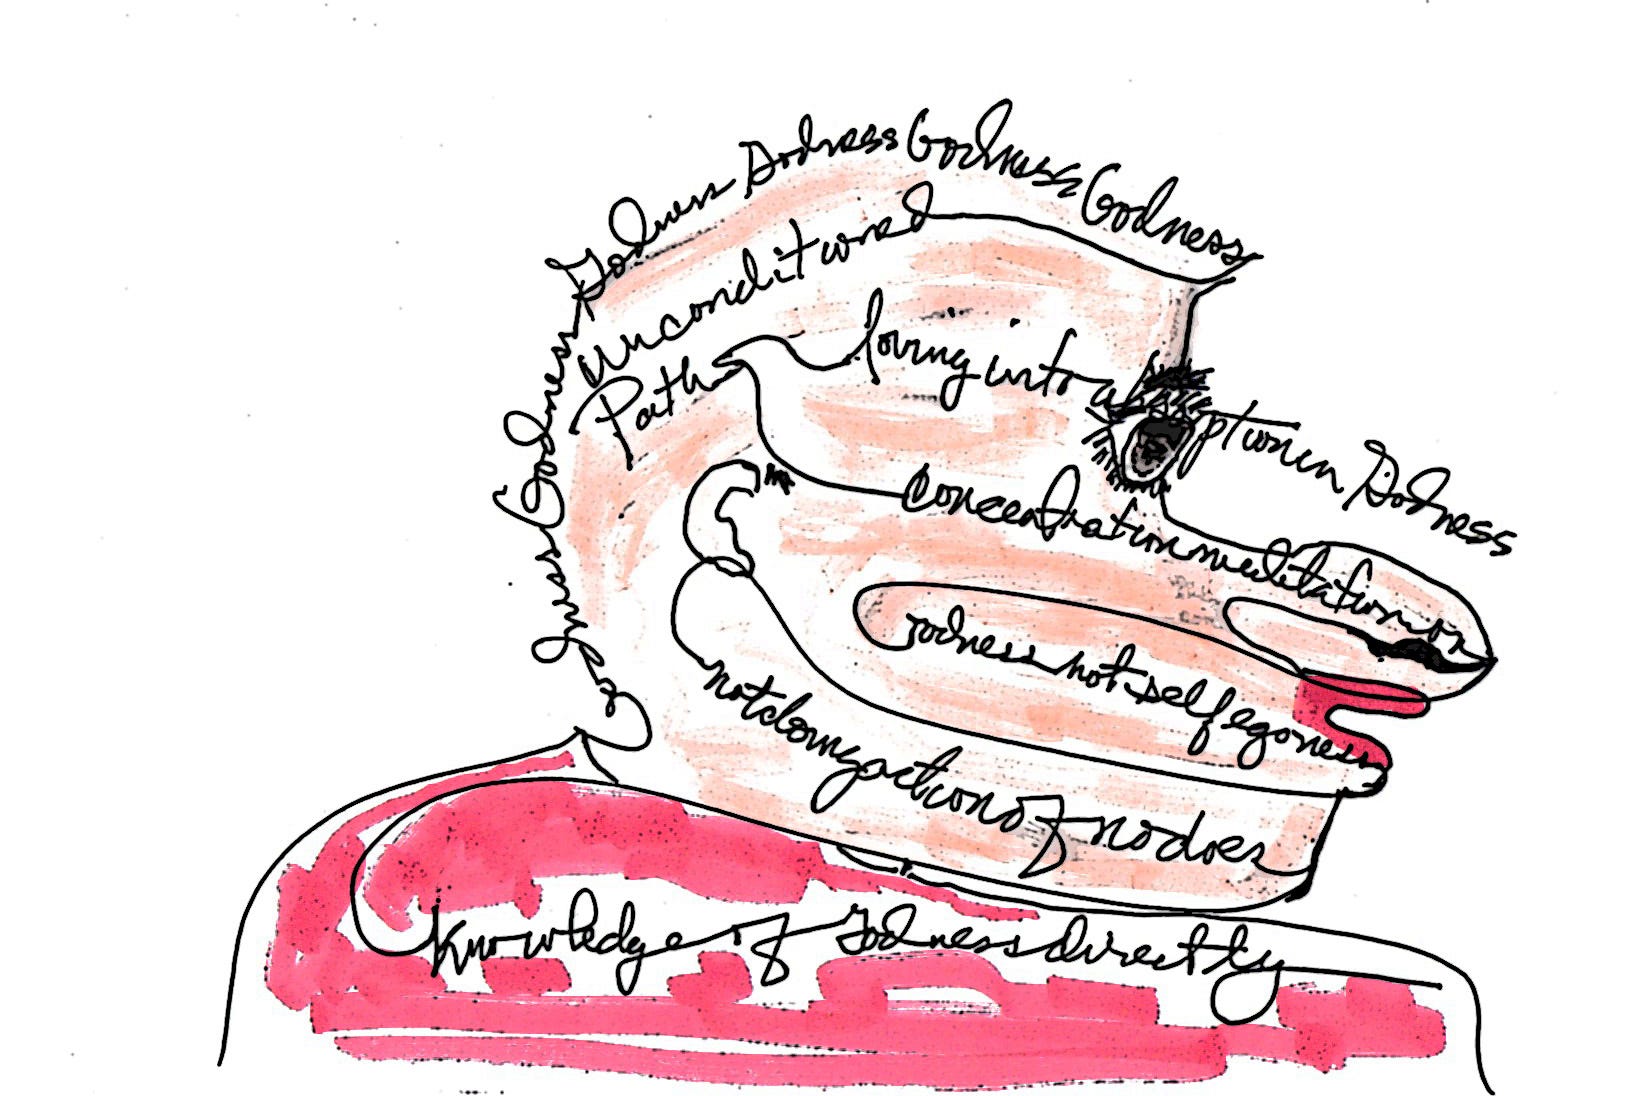 Godness Godness Godness Godness Godness
unconditioned
Path loving into absorption in Godness
concentration meditation on
godness not self egoness
not doing action of no doer
Knowledge of Godness directly